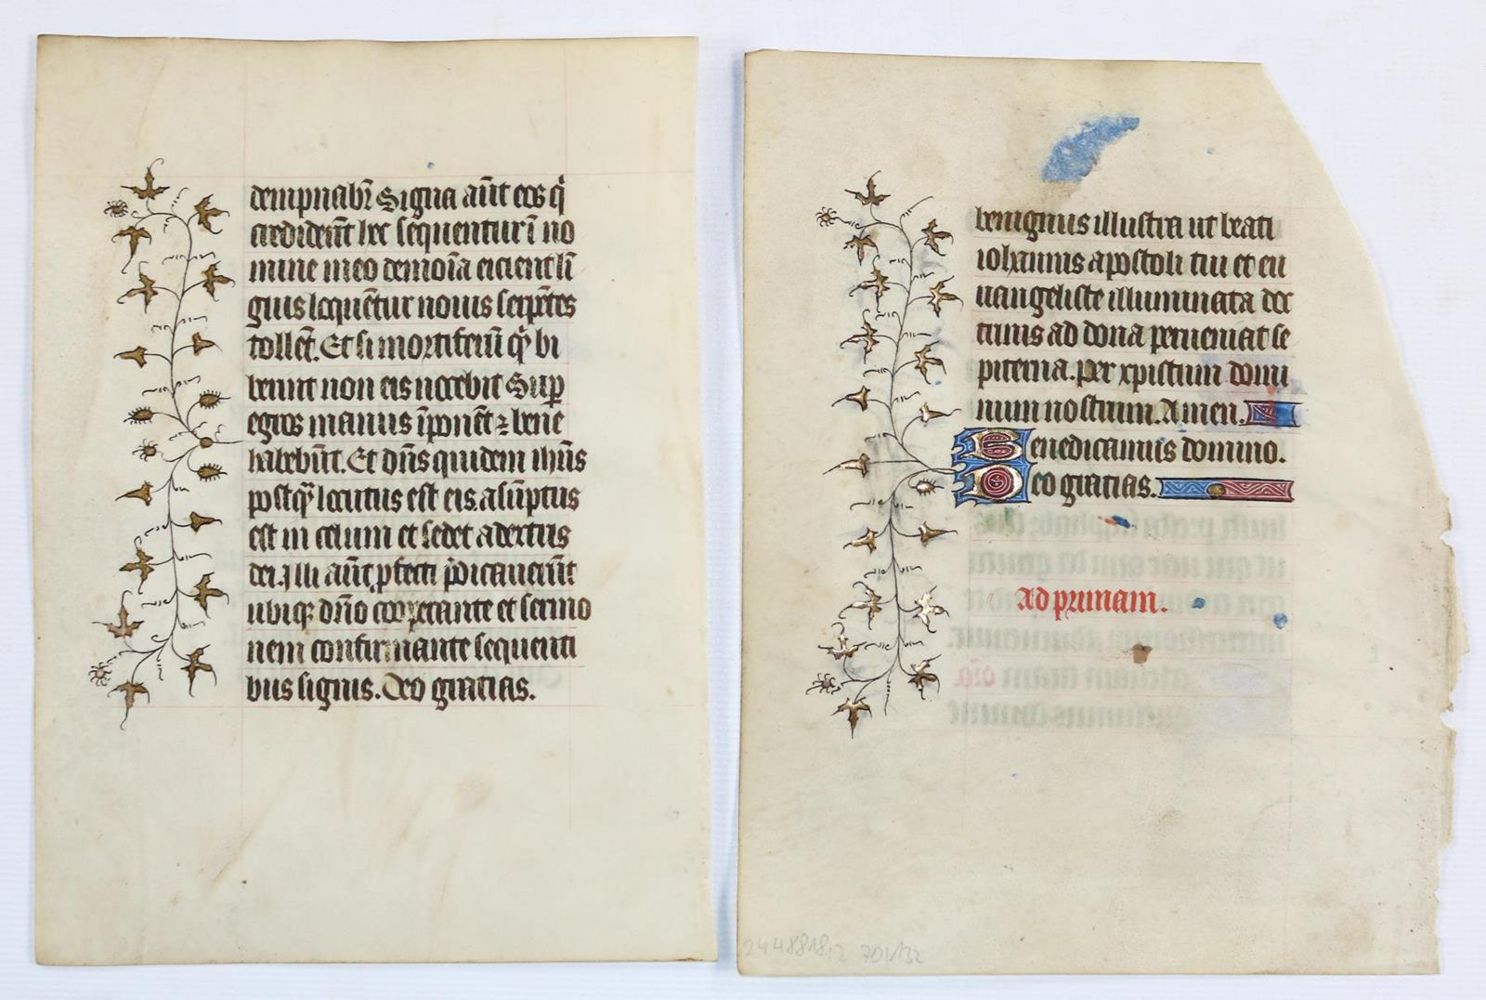 dempnabr̃ Signa aũt eos q̇
crediderũt hec sequentur ĩ no
mine meo demoĩa eicient lĩ
guis loquẽtur nouis serpẽtes
tollẽt. Et si mortiferũ q̇ bi
berint non eis nocebit Suꝑ
egros manus ĩponẽt ⁊ bene
habebũt. Et dñs quidem ihũs
postq̃ locutus est eis. asũptus
est in celum et sedet a dextris
dei. Illi aũt ꝓfecti p̃dicauerũt
ubiqꝫ dño cooperante et sermo
nem confirmante sequenti
bus signis. Deo gratias.
benignus illustra ut beati
iohannis apostoli tui et eu
uangeliste illuminata doc
trinis ad dona perueniat se
piterna. Per xpistum domi
num nostrum. Amen.
Benedicamus domino.
Deo gratias.
Ad primam.